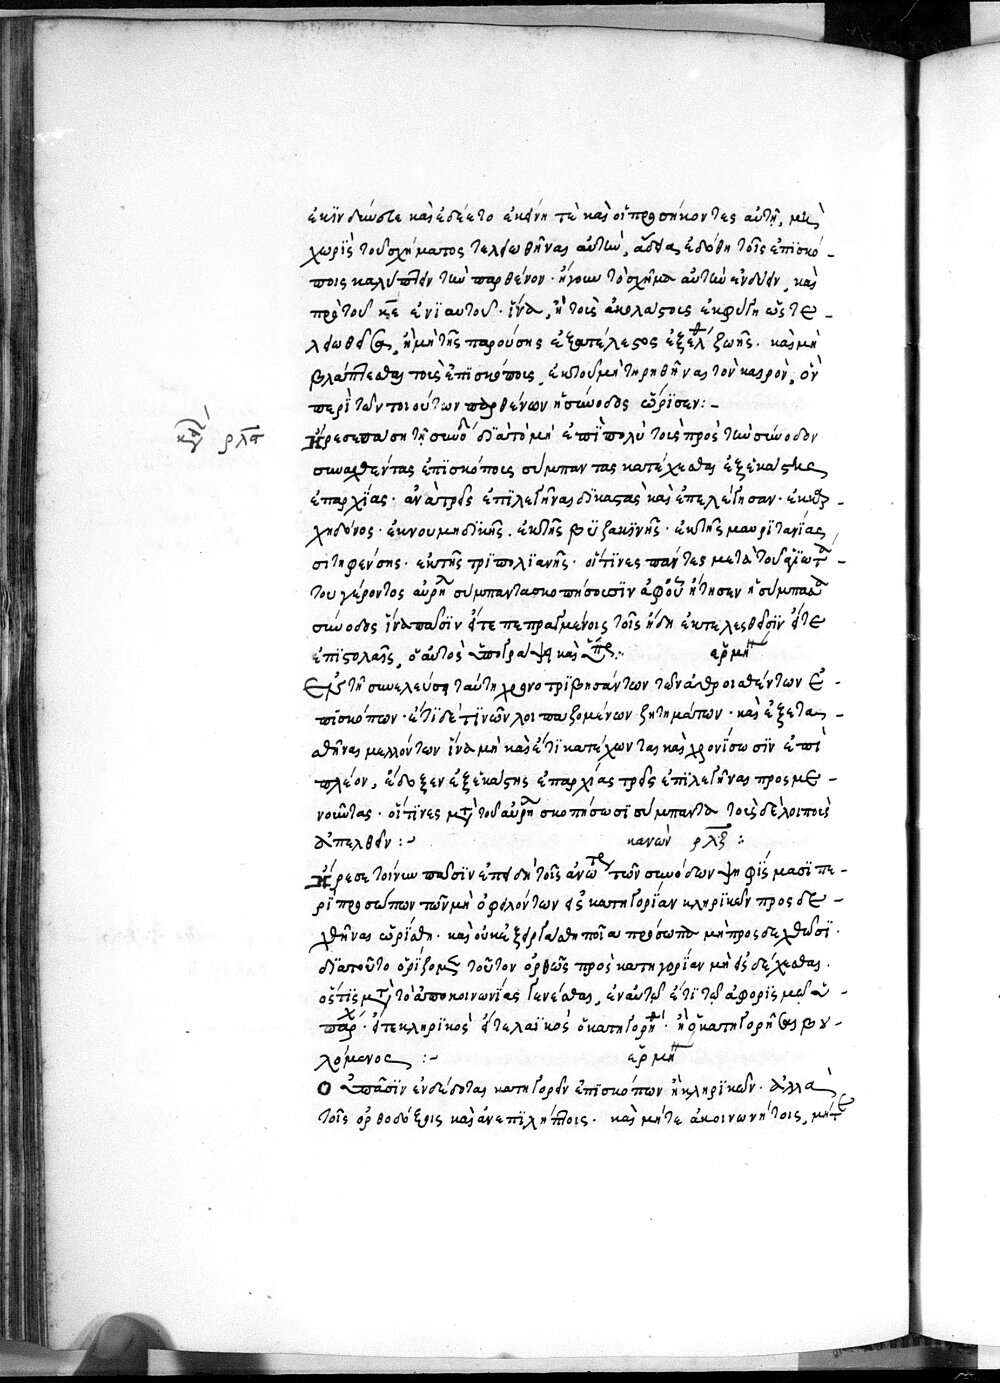 ἐκινδύνευσε καὶ ἐδέετο ἐκείνη τὲ καὶ οἱ προσήκοντες αὐτῆ, μὴ
χωρὶς τοῦ σχήματος τελειωθῆναι αὐτὴν, ἄδεια ἐδόθη τοῖς ἐπισκό-
ποις καλύπτειν τὴν παρθένον· ἤγουν τὸ σχῆμα αὐτὴν ἐνδύειν, καὶ
πρὸ τοῦ κε ἐνιαυτοῦ· ἵνα, ἢ τοῖς ἀκολάστοις ἐκφύγη ὥστε
λειωθεῖσα, ἢ μὴ τῆς παρούσης ἐξ ἀτέλεστος ἐξέλθῃ ζωῆς· καὶ μὴ
βλάπτεσθαι τοὺς ἐπισκόπους, ἐκ τοῦ μὴ τηρηθῆναι τὸν καιρὸν, ὃν
περὶ τῶν τοιούτων παρθένων ἡ σύνοδος ὥρισεν:-
κανὼν ρλα
Ἤρεσε πάση τῆ συνόδω διὰ τὸ μὴ ἐπιπολὺ τοὺς πρὸς τὴν σύνοδον
συναχθέντας ἐπισκόπους σύμπαντας κατέχεσθαι ἐξ ἑκάστης
ἐπαρχίας· ἀνὰ τρεῖς ἐπιλεγῆναι δικαστὰς καὶ ἐπελέγησαν· ἐκ καρ-
χηδόνος· ἐκ νουμηδικῆς· ἐκ τῆς βυζακινῆς· ἐκ τῆς μαυριτανίας
σιτηφένσης· ἐκ τῆς τριπολιανῆς· οἵτινες πάντες μετὰ τοῦ ἁγιωτ-
του γέροντος αὐρηλ σύμπαντα σκοπήσουσιν ἀφ' οὗ ἤτησεν ἡ σύμπασα
σύνοδος ἵνα πᾶσιν εἴτε πεπραγμένοις τοῖς ἤδη ἐκτελεσθεῖσιν εἴτε
ἐπιστολαῖς, ὁ αὐτὸς ὑπογράψη καὶ ὑπὲρ:· ἑρμη
Ἐν τῆ συνελεύσει ταύτη χρονοτριβησάντων τῶν ἀθροισθέντων ἐ-
πισκόπων· ἔτι δέ τινῶν λοιπαζομένων ζητημάτων· καὶ ἐξετα-
σθῆναι μελλόντων ἵνα μὴ καὶ ἔτι κατέχωνται καὶ χρονίσωσιν ἐπὶ
πλέον, ἔδοξεν ἐξ ἑκάστης ἐπαρχίας τρεῖς ἐπιλεγῆναι προσμέ-
νοντας· οἵτινες μετὰ τοῦ αὐρηλ σκοπήσωσι σύμπαντα τοὺς δὲ λοιποὺς
ἀπελθεῖν:- κανὼν ρλξ:
Ἤρεσε τοίνυν πᾶσιν ἐπειδὴ τοῖς ἀνωτέρ τῶν συνόδων ψηφίσμασι πε-
ρὶ προσώπων τῶν μὴ ὀφειλόντων εἰς κατηγορίαν κληρικῶν προσδε-
χθῆναι ὡρίσθη· καὶ οὐκ ἐξειργάσθη ποῖα πρόσωπα μὴ προσδεχθῶσι·
διὰ τοῦτο ὁρίζομεν τοῦτον ὀρθῶς πρὸς κατηγορίαν μὴ εἰσδέχεσθαι·
ὅστις μετὰ τὸ ἀποκοινωνίας γενέσθαι, ἐν αὐτῶ ἔτι τῶ ἀφορισμῶ ὑ-
πάρχ· εἴτε κληρικὸς εἴτε λαϊκὸς ὁ κατηγορηθ· ἢ ὁ κατηγορῆσαι βου-
λόμενος:- ἑρμη
Ο ὐ πᾶσιν ἐνδέδοται κατηγορεῖν ἐπισκόπων ἢ κληρικῶν· ἀλλὰ
τοῖς ὀρθοδόξοις καὶ ἀνεπιλήπτοις· καὶ μήτε ἀκοινωνήτοις, μήτε